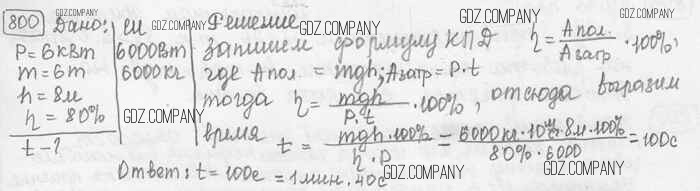 800 Дано: СИ Решение
P=6кВт 6000Вт запишем формулу КПД η = Aпол. / Aзатр · 100%,
m=6т 6000кг где Aпол = mgh; Aзатр = P·t
h=8м тогда η = mgh / P·t · 100%, отсюда выразим
η=80% время t = mgh·100% / η·P = 6000кг·10 ·8м·100% / 80%·6000 = 100с
t-?
Ответ: t=100с = 1мин. 40с
GDZ.COMPANY
GDZ.COMPANY
GDZ.COMPANY
GDZ.COMPANY
GDZ.COMPANY
GDZ.COMPANY
GDZ.COMPANY
GDZ.COMPANY
GDZ.COMPANY